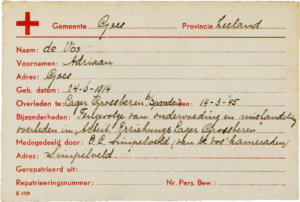 Gemeente Goes Provincie Zeeland
Naam: de Vos
Voornamen: Adriaan
Adres: Goes
Geb. datum: 24-6-1914
Overleden te: Lager Grossberen b/ Spandau den 14-3-'45
Bijzonderheden: Tengevolge van ondervoeding en mishandeling
overleden in Arbeit. Erziehungs Lager Grossberen
Medegedeeld door: O.C. Simpelveld, (van de Vos' kameraden)
Adres: Simpelveld.
Gerepatrieerd uit:
Repatrieeringsnummer: Nr. Pers. Bew.: